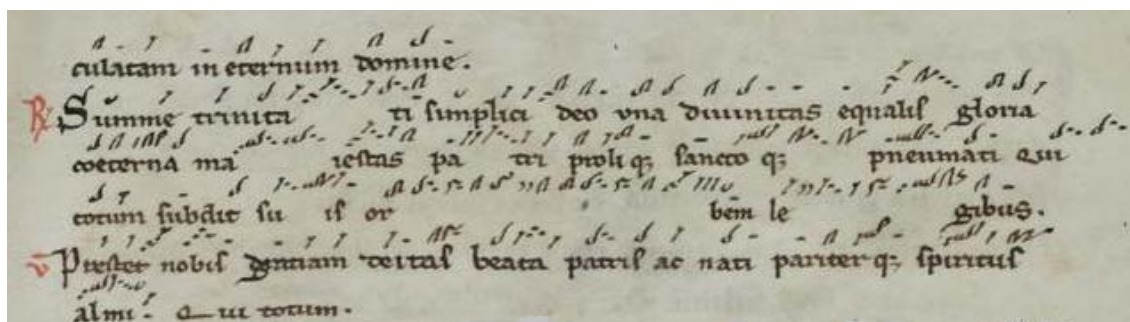 culatam in eternum domine.
℟ Summe trinita ti simplici deo una diuinitas equalis gloria
coeterna ma iestas pa tri proli q; sancto q; pneumati Qui
totum subdit su is or bem le gibus.
℣ Prestet nobis gratiam deitas beata patris ac nati pariter q; spiritus
almi. Qui totum.